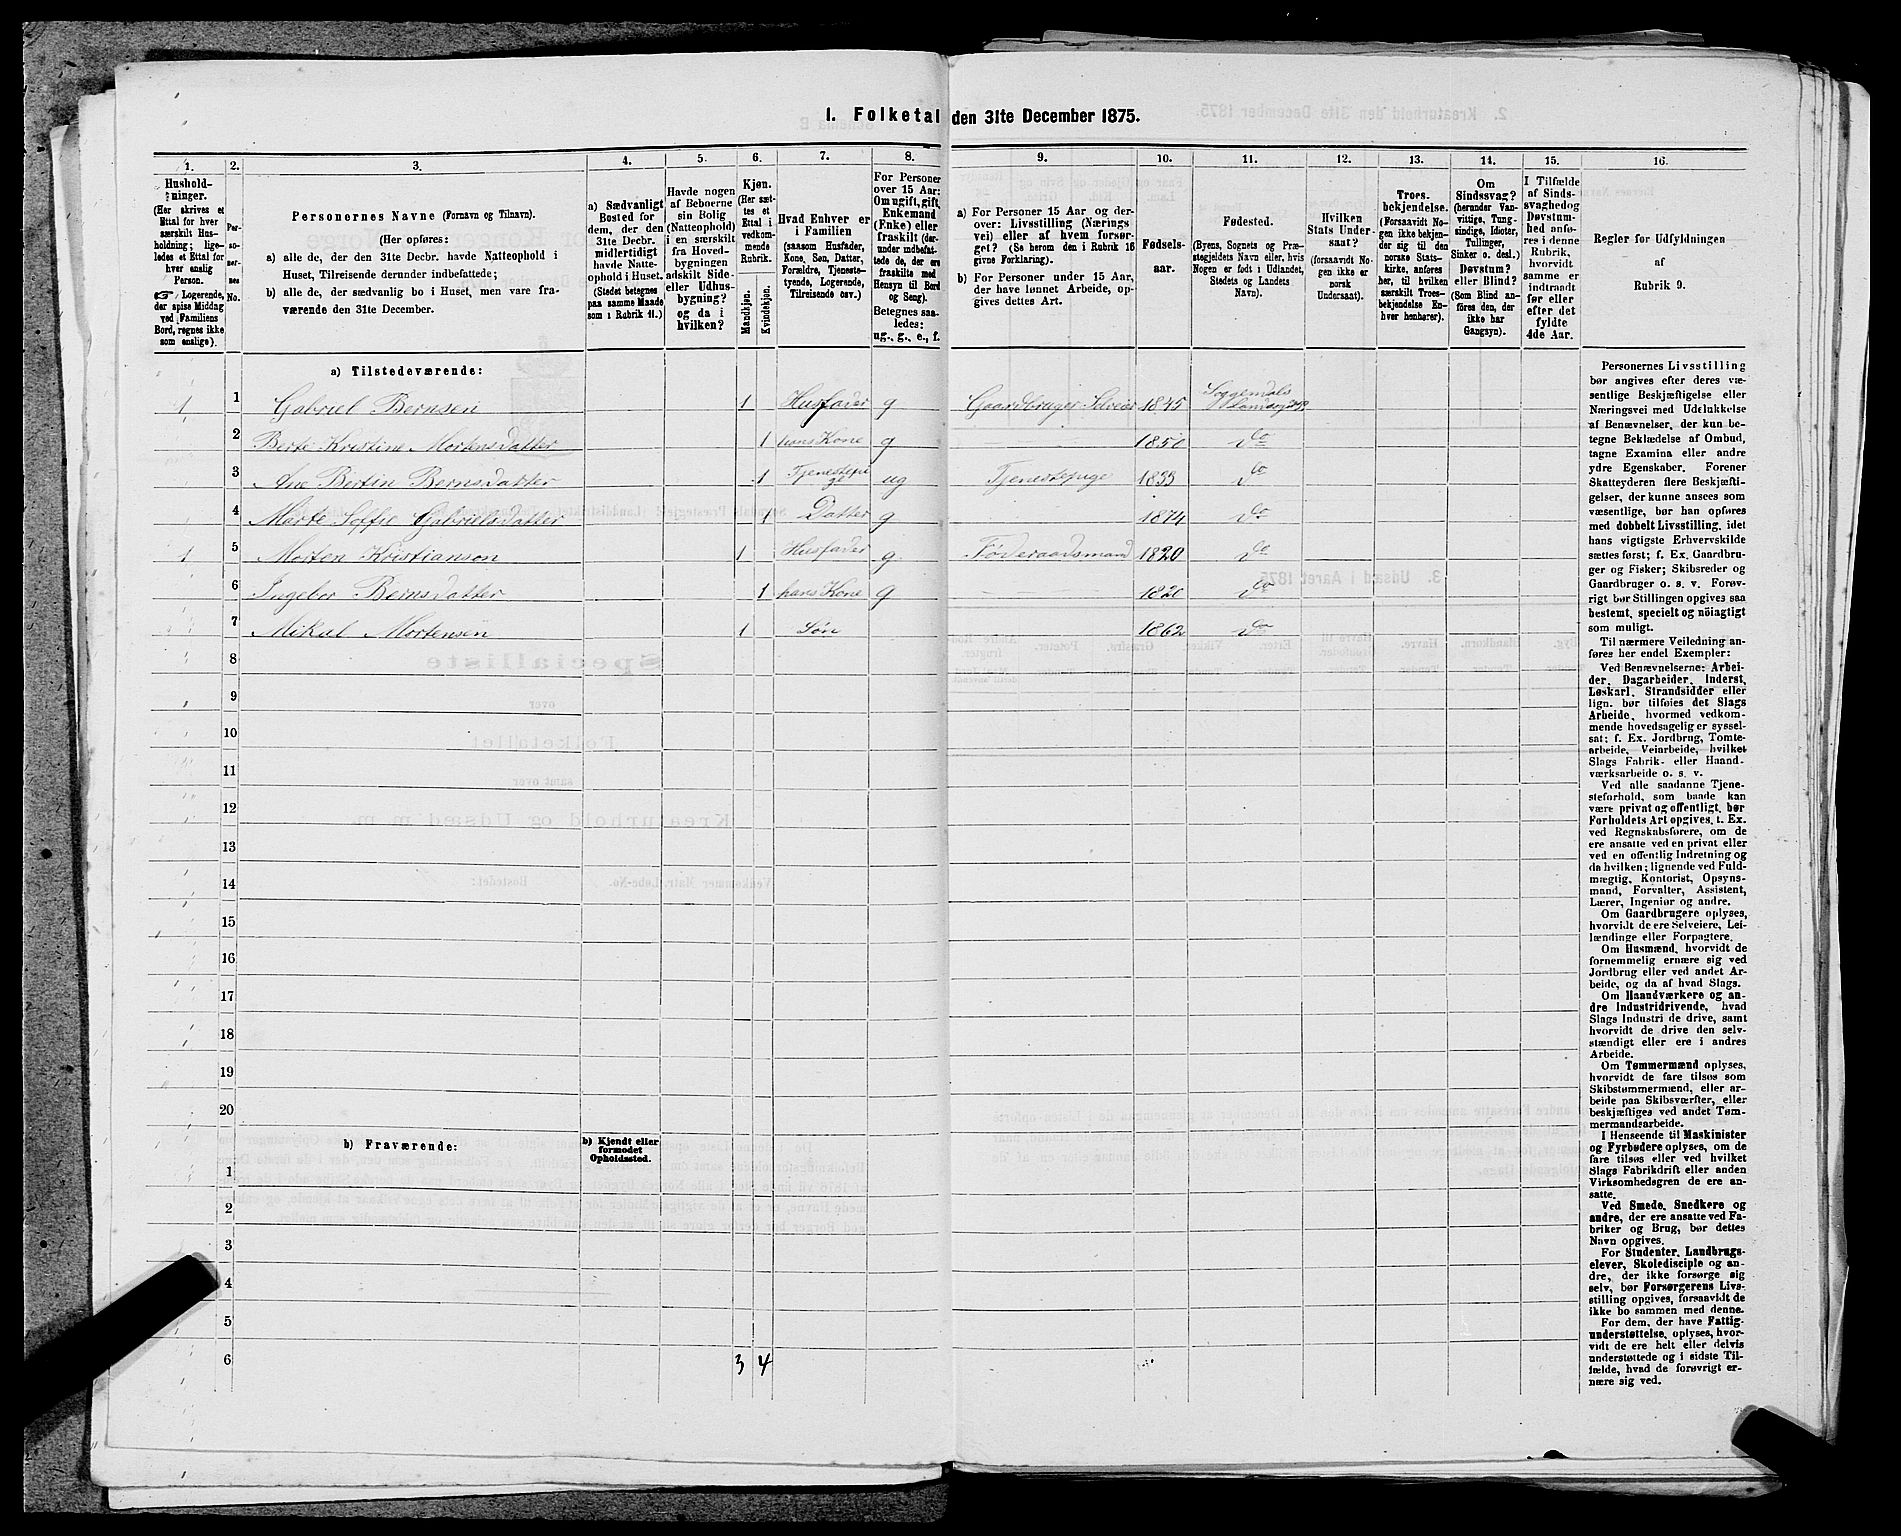 I. Folketal den 31te December 1875.
1.
2.
3.
4.
5.
6.
7.
8.
9.
10.
11.
12.
13.
14.
15.
16.
Hushold-
ninger.
(Her skrives et
Ettal for hver
særskilt Hus-
holdning; lige-
ledes et Ettal for
hver enslig
Person.
☞ Logerende,
der spise Middag
ved Familiens
Bord, regnes ikke
som enslige).
Per-
so-
ner-
nes
No.
Personernes Navne (Fornavn og Tilnavn).
(Her opføres:
a) alle de, der den 31te Decbr. havde Natteophold i
Huset, Tilreisende derunder indbefattede;
b) alle de, der sædvanlig bo i Huset, men vare fra-
værende den 31te December.
a) Sædvanligt
Bosted for
dem, der den
31te Decbr.
midlertidigt
havde Natte-
ophold i Huset.
(Stedet betegnes
paa samme Maade
som i Rubrik 11.)
Havde nogen
af Beboerne
sin Bolig
(Natteophold)
i en særskilt
fra Hoved-
bygningen
adskilt Side-
eller Udhus-
bygning?
og da i
hvilken?
Kjøn.
(Her sæt-
tes et
Ettal i
vedkom-
mende
Rubrik.
Mandkjøn.
Kvindekjøn.
Hvad Enhver er
i Familien
(saasom Husfader,
Kone, Søn, Datter,
Forældre, Tjeneste-
tyende, Logerende,
Tilreisende osv.)
For Personer
over 15 Aar:
Om ugift, gift,
Enkemand
(Enke) eller
fraskilt (der-
under indbefat-
tede de, der ere
fraskilte med
Hensyn til Bord
og Seng).
Betegnes saa-
ledes:
ug., g., e., f.
a) For Personer 15 Aar og der-
over: Livsstilling (Nærings
vei) eller af hvem forsør-
get? (Se herom den i Rubrik 16
givne Forklaring).
b) For Personer under 15 Aar,
der have lønnet Arbeide, op-
gives dettes Art.
Fødsels-
aar.
Fødested.
(Byens, Sognets og Præ-
stegjeldets Navn eller, hvis
Nogen er født i Udlandet,
Stedets og Landets
Navn).
Hvilken
Stats Under-
saat?
(forsaavidt No-
gen ikke er
norsk
Undersaat).
Troes-
bekjendelse.
(Forsaavidt No-
gen ikke bekjen-
der sig til den
norske Stats-
kirke, anføres
her, til hvilken
særskilt Troes-
bekjendelse En-
hver henhører).
Om
Sindssvag?
(herunder Van-
vittige, Tung-
sindige, Idioter,
Tullinger,
Sinker o. desl.)
Døvstum?
eller Blind?
(Som Blind an-
føres den, der
ikke har
Gangsyn).
I Tilfælde
af Sinds-
svaghed og
Døvstum-
hed anfø-
res i denne
Rubrik,
hvorvidt
samme er
indtraadt
før eller
efter det
fyldte
4de Aar.
Regler for Udfyldningen
af
Rubrik 9.
a) Tilstedeværende:
1 1 Gabriel Bernsen 1 Husfader g Gaardbruger Selveier 1845 Soggendals
2 Berte Kristine Mortensdatter 1 hans Kone g 1850 do
3 Ane Bertin Bernsdatter 1 Tjenestepi
ge ug Tjenestepige 1833 do
4 Marte Soffie Gabrielsdatter 1 Datter g 1874 do
1 5 Morten Kristianson 1 Husfader g Føderaadsmand 1820 do
6 Ingebor Bernsdatter 1 hans Kone g 1820 do
7 Mikal Mortensen 1 Søn 1862 do
8
9
10
11
12
13
14
15
16
17
18
19
20
b) Fraværende:
b) Kjendt eller
formodet
Opholdssted.
1
2
3
4
5
6 3 4
Personernes Livsstilling
bør angives efter deres væ-
sentlige Beskjæftigelse eller
Næringsvei med Udelukkelse
af Benævnelser, der kun be-
tegne Beklædelse af Ombud,
tagne Examina eller andre
ydre Egenskaber. Forener
Skatteyderen flere Beskjæfti-
gelser, der kunne ansees som
væsentlige, bør han opføres
med dobbelt Livsstilling, idet
hans vigtigste Erhvervskilde
sættes først; f. Ex. Gaardbru-
ger og Fisker; Skibsreder og
Gaardbruger o. s. v. Forøv-
rigt bør Stillingen opgives saa
bestemt, specielt og nöiagtigt
som muligt.
Til nærmere Veiledning an-
føres her endel Exempler:
Ved Benævnelserne: Arbei-
der, Dagarbeider, Inderst,
Løskarl, Strandsidder eller
lign. bør tilføies det Slags
Arbeide, hvormed vedkom-
mende hovedsagelig er syssel-
sat; f. Ex. Jordbrug, Tomte-
arbeide, Veiarbeide, hvilket
Slags Fabrik- eller Haand-
værksarbeide o. s. v.
Ved alle saadanne Tjene-
steforhold, som baade kan
være privat og offentligt, bør
Forholdets Art opgives, t. Ex.
ved Regnskabsførere, om de
ere ansatte ved en privat eller
ved en offentlig Indretning og
da hvilken; lignende ved Fuld-
mægtig, Kontorist, Opsyns-
mand, Forvalter, Assistent,
Lærer, Ingeniør og andre.
Om Gaardbrugere oplyses,
hvorvidt de ere Selveiere, Lei-
lændinge eller Forpagtere.
Om Husmænd, hvorvidt de
fornemmelig ernære sig ved
Jordbrug eller ved andet Ar-
beide, og da af hvad Slags.
Om Haandværkere og an-
dre Industridrivende, hvad
Slags Industri de drive, samt
hvorvidt de drive den selv-
stændigt eller ere i andres
Arbeide.
Om Tømmermænd oplyses,
hvorvidt de fare tilsøs som
Skibstømmermænd, eller ar-
beide paa Skibsværfter, eller
beskjæftiges ved andet Tøm-
mermandsarbeide.
I Henseende til Maskinister
og Fyrbødere oplyses, om de
fare tilsøs eller ved hvilket
Slags Fabrikdrift eller anden
Virksomhedsgren de ere an-
satte.
Ved Smede, Snedkere og
andre, der ere ansatte ved Fa-
briker og Brug, bør dettes
Navn opgives.
For Studenter, Landbrugs-
elever, Skoledisciple og an-
dre, der ikke forsørge sig
selv, bør Forsørgerens Livs-
stilling opgives, forsaavidt de
ikke bo sammen med denne.
For dem, der have Fattig-
understøttelse, oplyses, hvor-
vidt de ere helt eller delvis
understøttede og i sidste Til-
fælde, hvad de forøvrigt er-
nære sig ved.